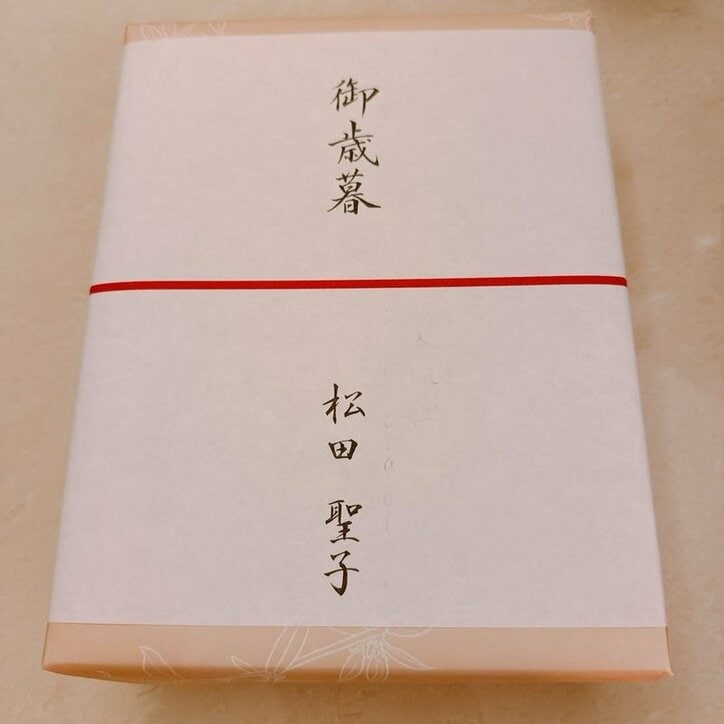 御歳暮
松田 聖子